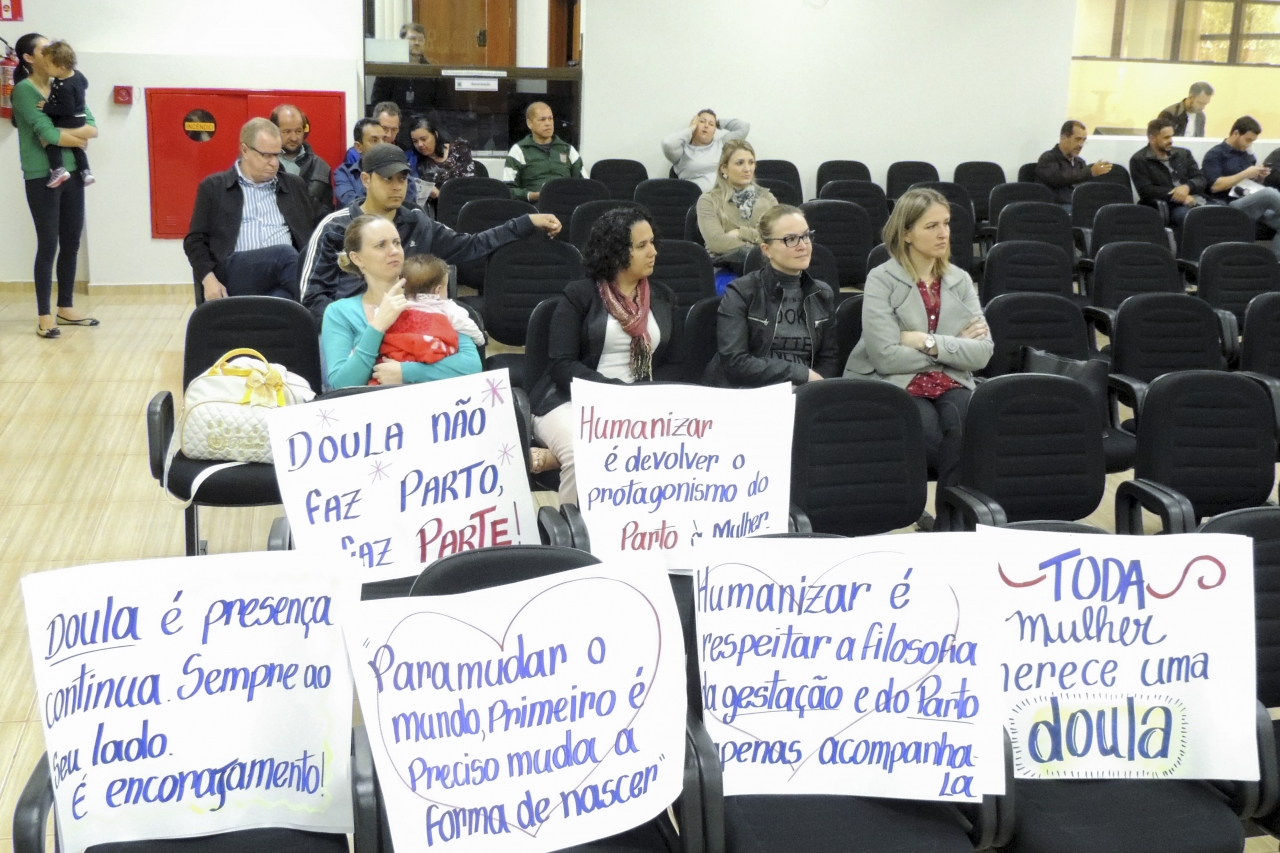 INCÊNDIO
DOULA NÃO
FAZ PARTO,
FAZ PARTE!
Humanizar
é devolver o
protagonismo do
Parto à Mulher.
Doula é presença
contínua. Sempre ao
Seu lado.
É encorajamento!
"Para mudar o
mundo, Primeiro é
Preciso muda a
forma de nascer"
Humanizar é
respeitar a filosofia
da gestação e do Parto
apenas acompanha-
La
TODA
Mulher
merece uma
doula